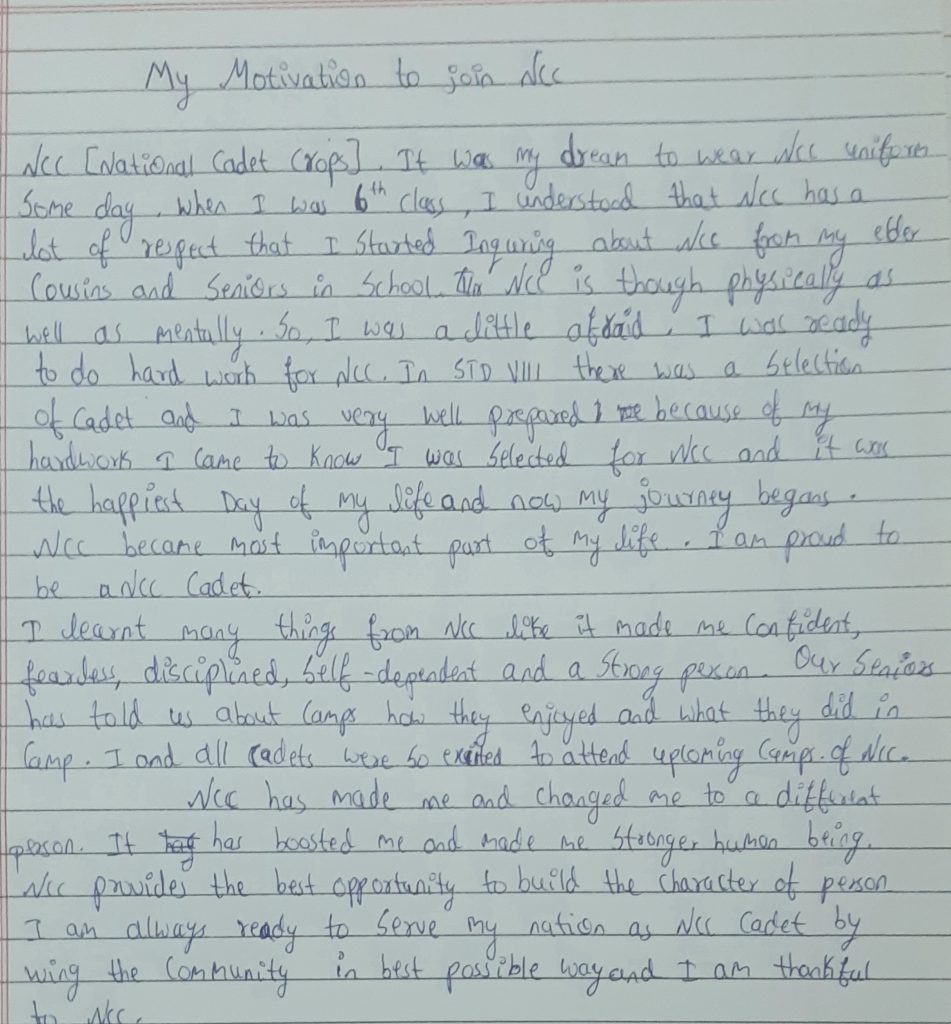 My Motivation to join NCC
NCC [National Cadet Crops]. It was my drean to wear NCC uniform
Some day. When I was 6th class, I understood that NCC has a
lot of respect that I Started Inquring about NCC from my elder
Cousins and Seniors in School. NCC is though physically as
well as mentally. So, I was a little afraid. I was ready
to do hard work for NCC. In STD VIII there was a Selection
of Cadet and I was very well prepared because of my
hardwork I Came to Know I was Selected for NCC and it was
the happiest Day of my life and now my journey begans.
NCC became most important part of my life. I am proud to
be a NCC Cadet.
I learnt many things from NCC like it made me Confident,
fearless, disciplined, Self-dependent and a Strong person. Our Seniors
has told us about Camps how they enjoyed and what they did in
Camp. I and all Cadets were so excited to attend upcoming Camps. of NCC.
NCC has made me and changed me to a different
person. It has boosted me and made me Stronger human being.
NCC provides the best opportunity to build the Character of person
I am always ready to Serve my nation as NCC Cadet by
wing the Community in best possible way and I am thankful
to NCC.